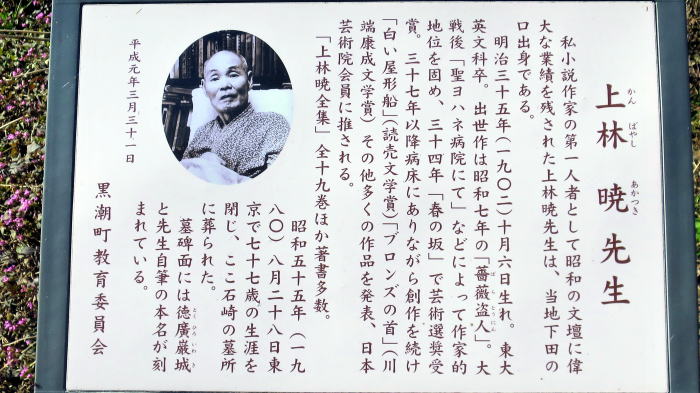 上林 暁 先生
かん ばやし あかつき
私小説作家の第一人者として昭和の文壇に偉
大な業績を残された上林暁先生は、当地下田の
口出身である。
明治三十五年(一九〇二)十月六日生れ。東大
英文科卒。出世作は昭和七年の「薔薇盗人」。大
ばらとうにん
戦後「聖ヨハネ病院にて」などによって作家的
地位を固め、三十四年「春の坂」で芸術選奨受
賞。三十七年以降病床にありながら創作を続け
「白い屋形船」(読売文学賞)「ブロンズの首」(川
端康成文学賞)その他多くの作品を発表、日本
芸術院会員に推される。
「上林暁全集」全十九巻ほか著書多数。
昭和五十五年(一九
八〇)八月二十八日東
京で七十七歳の生涯を
閉じ、ここ石崎の墓所
に葬られた。
墓碑面には徳廣巌城
とくひろいわき
と先生自筆の本名が刻
まれている。
平成元年三月三十一日
黒潮町教育委員会